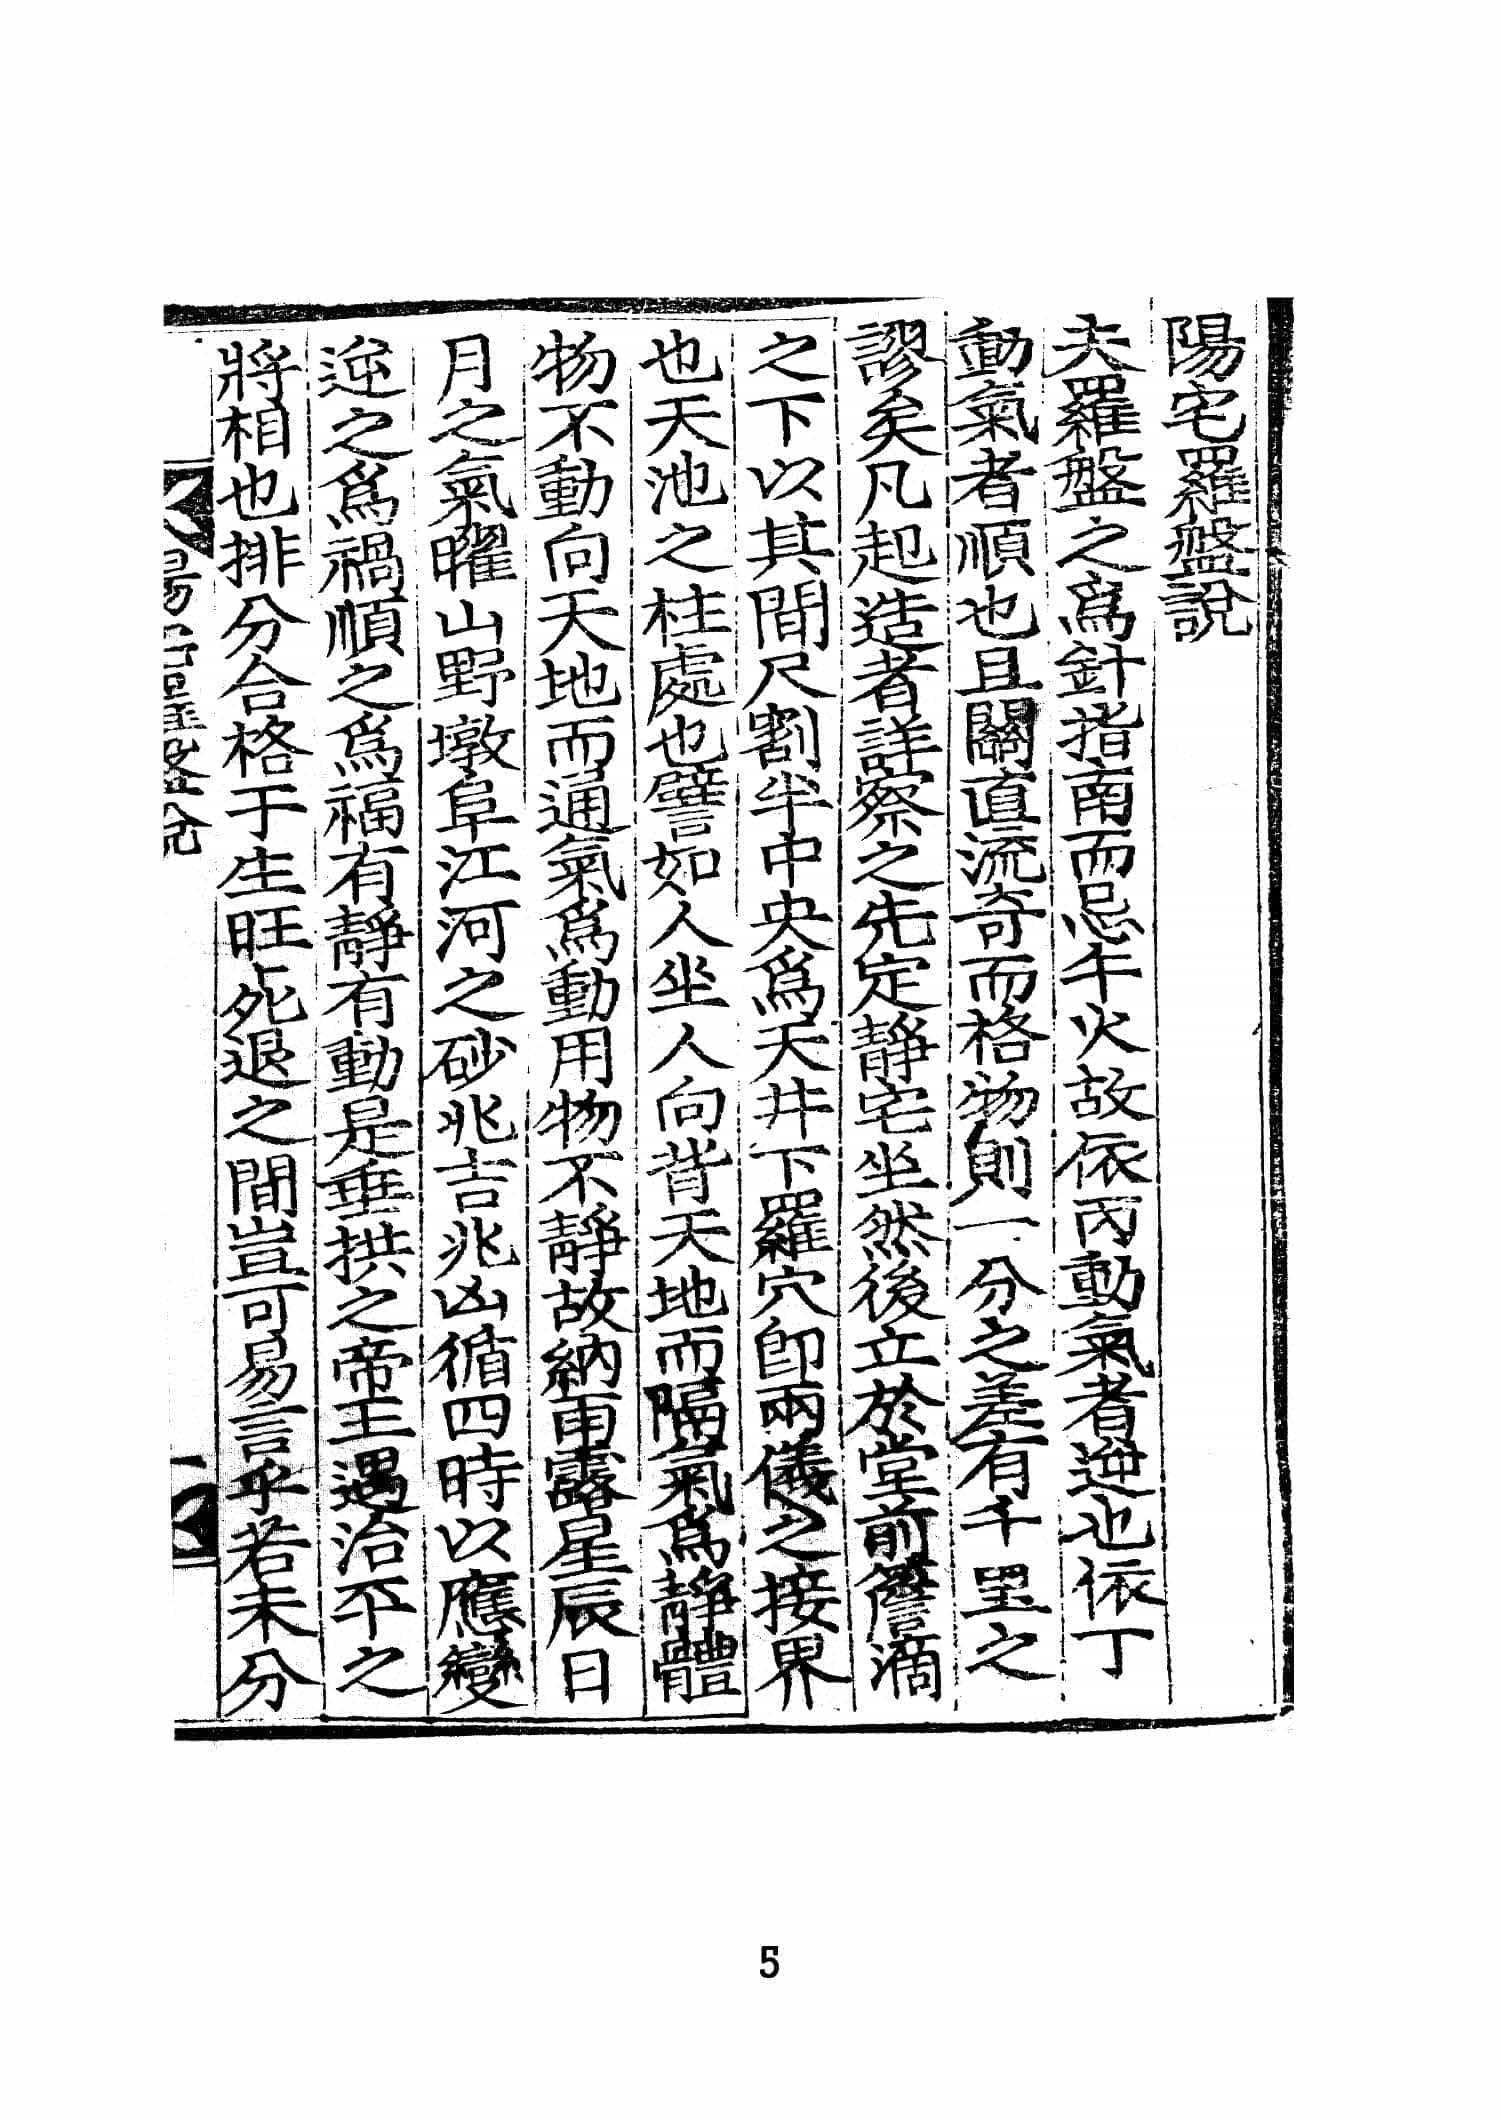 陽宅羅盤說
夫羅盤之爲針指南而忌午火故依丙動氣者逆也依丁
動氣者順也且關直流奇而格物則一分之差有千里之
謬矣凡起造者詳察之先定靜宅坐然後立於堂前簷滴
之下以其間尺割半中央爲天井下羅穴卽兩儀之接界
也天池之柱處也譬如人坐人向背天地而隔氣爲靜體
物不動向天地而通氣爲動用物不靜故納雨露星辰日
月之氣曜山野墩阜江河之砂兆吉兆凶循四時以應變
逆之爲禍順之爲福有靜有動是垂拱之帝王遇治平之
將相也排分合格于生旺死退之間豈可易言乎若未分
陽宅羅盤說
一
5